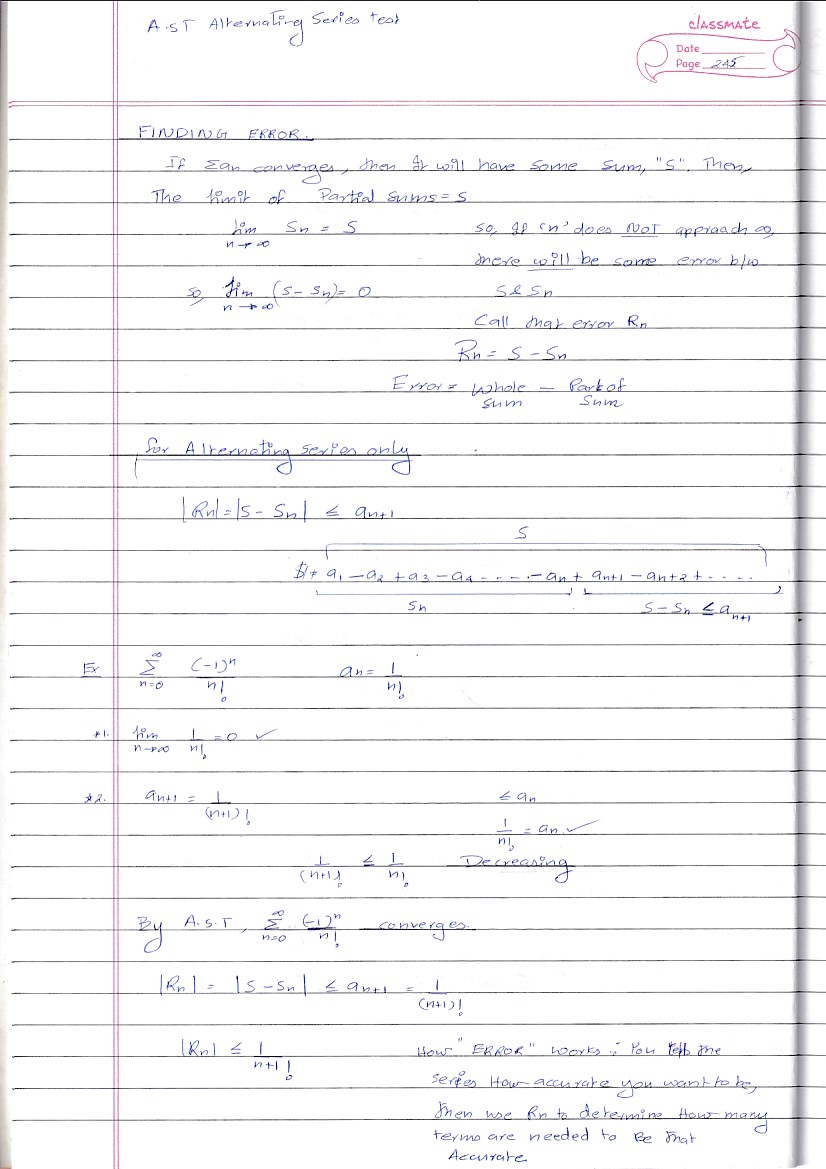 A.ST Alternating Series test
classmate
Date
Page 245
FINDING ERROR.
If Σan converges, then It will have some sum, "S". Then,
The limit of Partial sums = S
lim n→∞ Sn = S
so, If 'n' does NOT approach ∞,
there will be some error b/w
so, lim n→∞ (S - Sn) = 0
S & Sn
Call that error Rn
Rn = S - Sn
Error = Whole sum - Part of Sum
for Alternating series only
|Rn| = |S - Sn| ≤ an+1
S
a1 - a2 + a3 - a4 - . . . . - an + an+1 - an+2 + . . . .
Sn
S - Sn ≤ an+1
Ex ∞ Σ n=0 (-1)^n / n! an = 1/n!
*1. lim n→∞ 1/n! = 0 ✓
*2. an+1 = 1/(n+1)! ≤ an
1/n! = an ✓
1/(n+1)! ≤ 1/n! Decreasing
By A.S.T, ∞ Σ n=0 (-1)^n / n! converges.
|Rn| = |S - Sn| ≤ an+1 = 1/(n+1)!
|Rn| ≤ 1/n+1!
How "ERROR" works : You tell the
series How accurate you want to be,
then use Rn to determine How many
terms are needed to Be that
Accurate